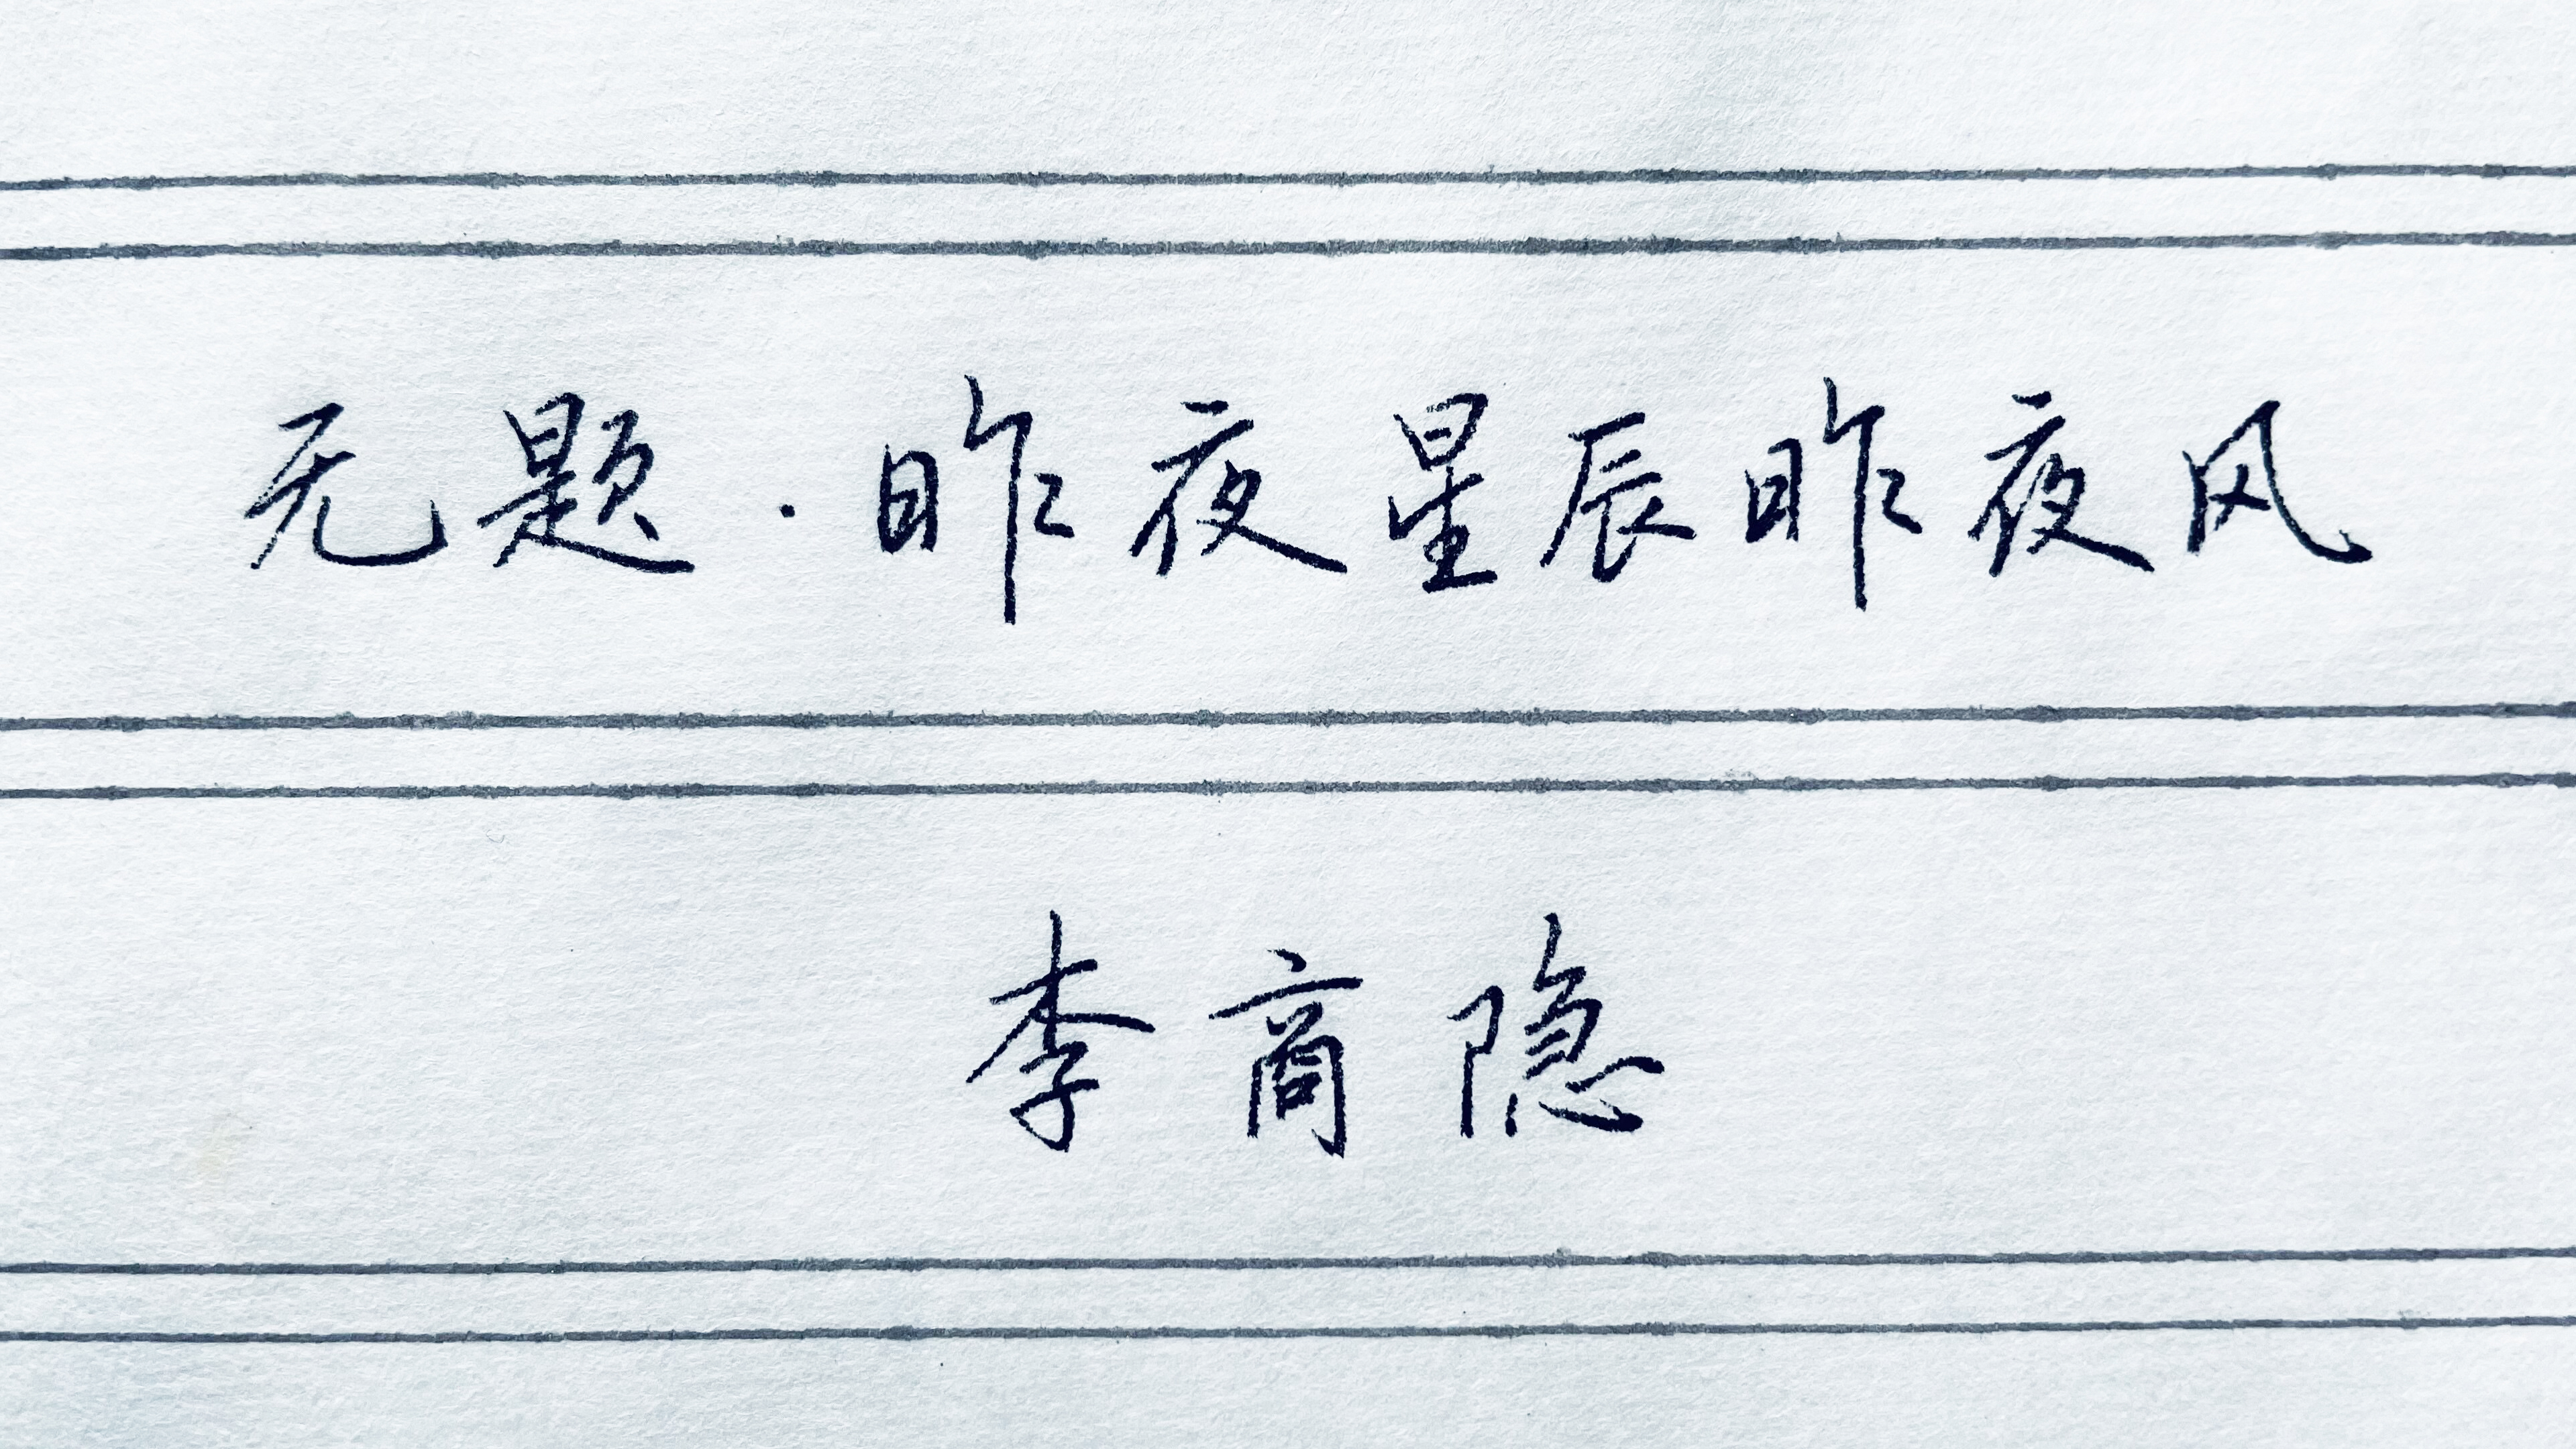 无题·昨夜星辰昨夜风
李商隐